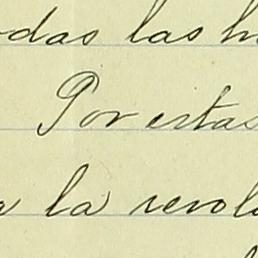 odas las h
Por estas
a la revol